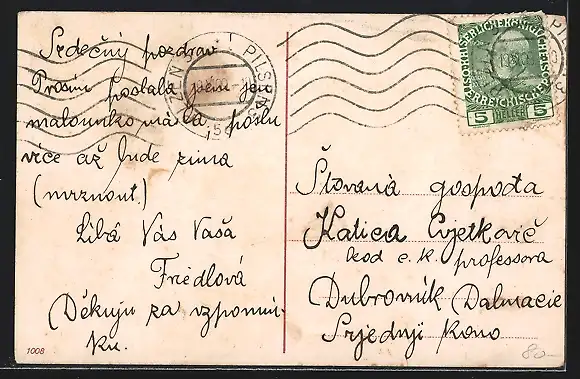 Srdečný pozdrav
Prosím poslala jsem jen
malounko masla poslu
více až bude zima
(mrznout.)
Líbá Vás Vaša
Friedlová
Děkuju za vzpomín-
ku.
1008
PILSEN
PLZEŇ
KAISERLICHE KÖNIGLICHE
ÖSTERREICHISCHE POST
5 HELLER 5
Štovaná gospođa
Katica Cvjetković
kod c. k. professora
Dubrovník Dalmacie
Srjednji kono
80-